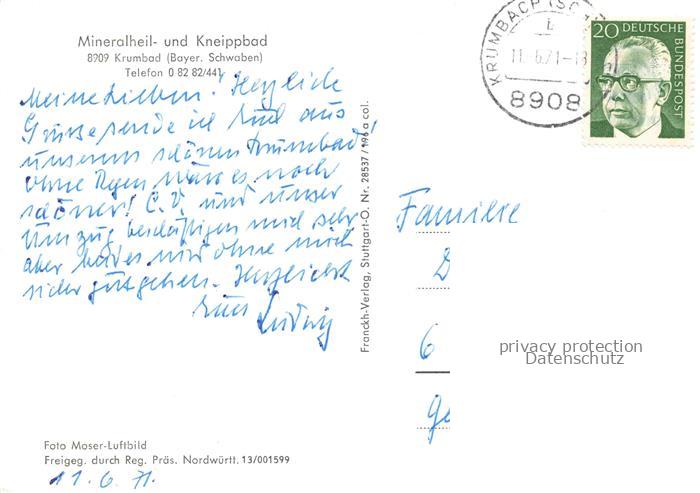 Mineralheil- und Kneippbad
8909 Krumbad (Bayer. Schwaben)
Telefon 0 82 82/441
Meine Lieben! Herzliche
Grüsse sende ich Euch aus
unserem schönen Krumbad,
ohne Regen wäre es noch
schöner! C.V. und unser
Umzug beschäftigen mich sehr
aber beides wird ohne mich
sicher gutgehen. Herzlichst
Euer Ludwig
Franckh-Verlag, Stuttgart-O. Nr. 28537/196 a col.
KRUMBACH (SCHW
b
11.6.71-18
8908
20 DEUTSCHE
BUNDESPOST
Familie
D
6
Ge
privacy protection
Datenschutz
Foto Moser-Luftbild
Freigeg. durch Reg. Präs. Nordwürtt. 13/001599
11.6.71.